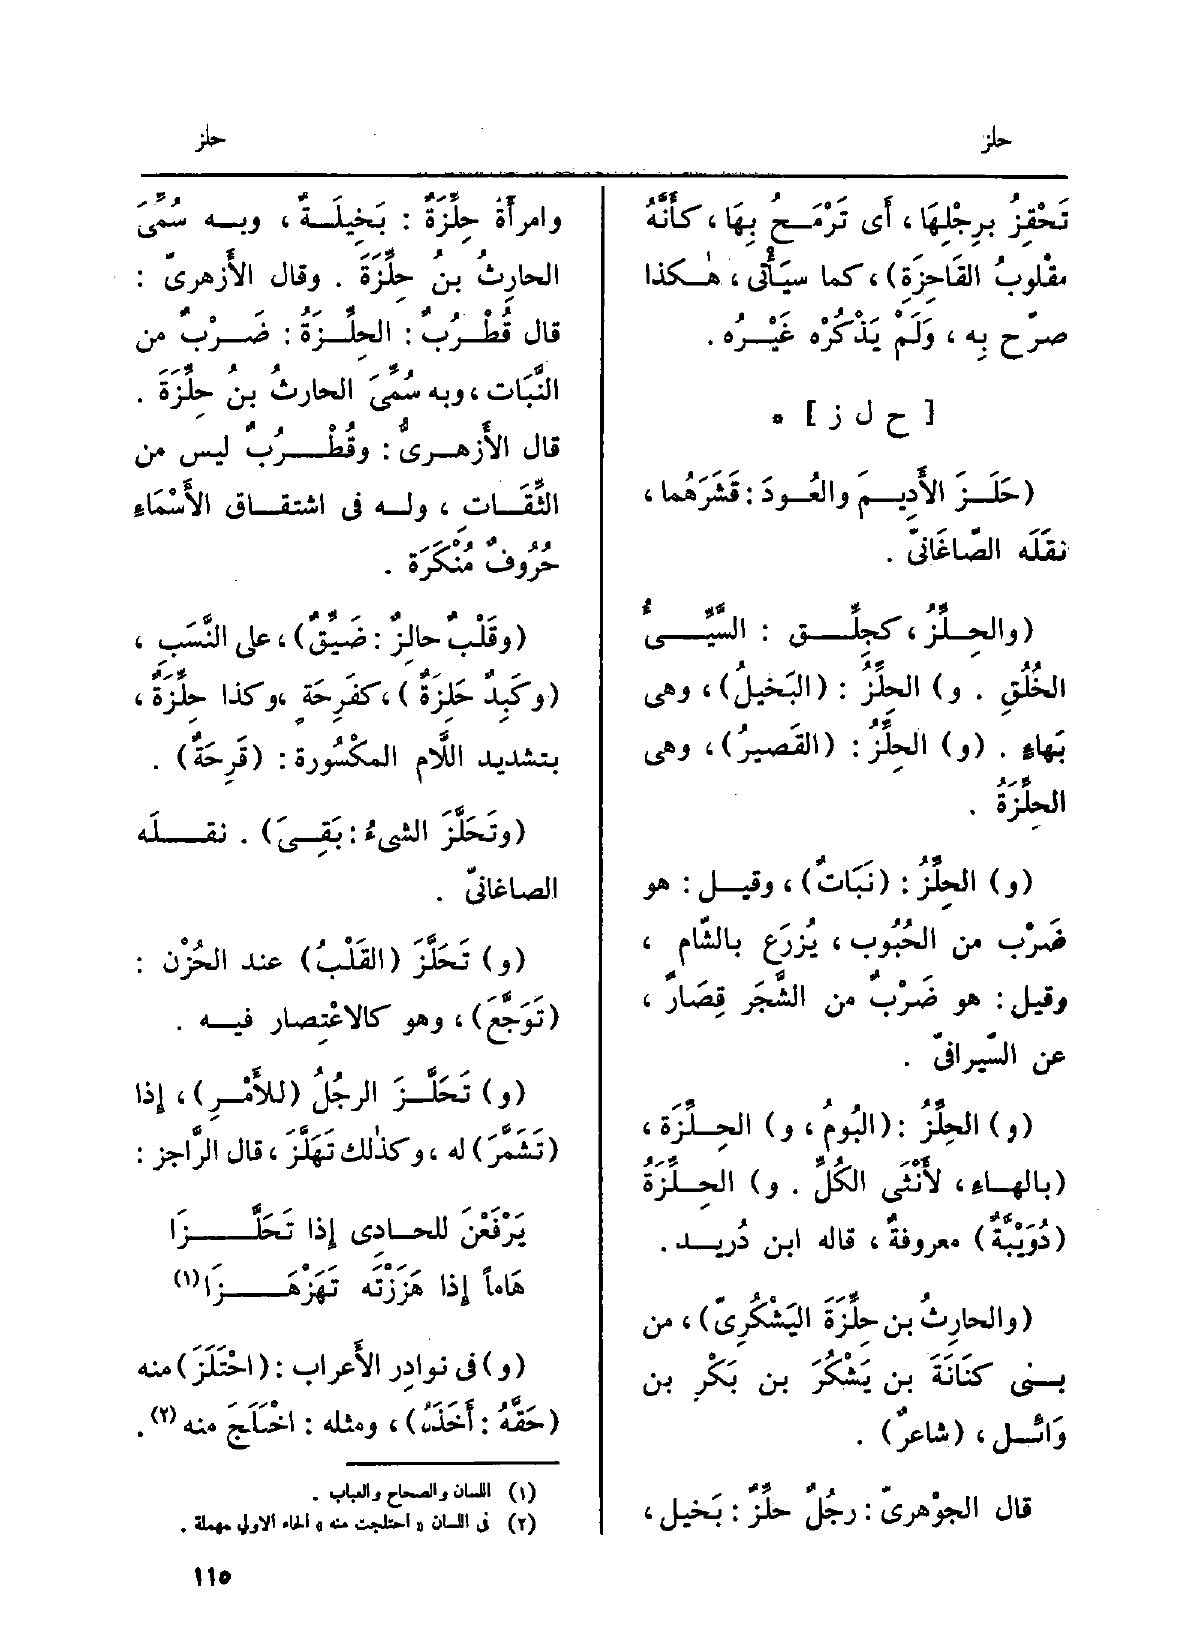 حلز
حلز
تَحْقِزُ بِرِجْلِهَا ، أَى تَرْمَـحُ بِهَا ، كأَنَّهُ
مقْلوبُ القَاحِزَةِ) ، كما سيَأْتى ، هٰـكذا
صرّح بِه ، ولَمْ يَذْكُرْه غَيْـرُه .
[ ح ل ز ] *
(حَلَـزَ الأَدِيـمَ والعُـودَ : قَشَرَهُما ،
نقَلَه الصّاغَانىّ .
(والحِـلِّزُ ، كجِلِّـق : السَّيِّـىُٔ
الخُلُقِ . و) الحِلِّزُ : (البَخيلُ) ، وهى
بَهاءِ . (و) الحِلِّزُ : (القَصيرُ) ، وهى
الحِلِّزَةُ .
(و) الحِلِّزُ : (نَبَاتٌ) ، وقيـل : هو
ضَرْب من الحُبُوب ، يُزرَع بالشّامِ ،
وقيل : هو ضَرْبٌ من الشَّجَر قِصَارٌ ،
عن السِّيرافىّ .
(و) الحِلِّزُ : (البُومُ ، و) الحِـلِّزَة ،
(بالهـاءِ ، لأُنْثَى الكُلِّ . و) الحِـلِّزَةُ
(دُوَيْبَّةٌ) معروفةٌ ، قاله ابن دُريـد .
(والحارِثُ بن حِلِّزَةَ اليَشْكُرِىّ) ، من
بـنى كنَانَةَ بن يَشْكُرَ بن بَكْرِ بن
وَائـل ، (شاعرٌ) .
قال الجوْهرىّ : رجُلٌ حلِّزٌ : بَخيل ،
وامرأَةٌ حِلِّزَةٌ : بَخيلَـةٌ ، وبـه سُمِّىَ
الحارِثُ بنُ حِلِّزَةَ . وقال الأَزهرىّ :
قال قُطْـرُبٌ : الحلِّـزَةُ : ضَـرْبٌ من
النَّبَات ، وبه سُمِّىَ الحارثُ بنُ حِلِّزَةَ .
قال الأَزهـرىُّ : وقُطْـرُبٌ ليس من
الثِّقَـات ، ولـه فى اشتقـاق الأَسْمَاءِ
حُرُوفٌ مُنْكَرَة .
(وقَلْبٌ حالِزٌ : ضَيِّقٌ) ، على النَّسَبِ ،
(وكَبِدٌ حَلِزَةٌ) ، كفَرِحَة ، وكذا حلِّزَةٌ ،
بتشديد اللَّام المكْسُورة : (قَرِحَةٌ) .
(وتَحَلَّزَ الشىءُ : بَقِـىَ) . نقـلَه
الصاغانىّ .
(و) تَحَلَّزَ (القَلْبُ) عند الحُزْن :
(تَوَجَّعَ) ، وهو كالاعْتِصار فيـه .
(و) تَحَلَّـزَ الرجُلُ (للأَمْـرِ) ، إذا
(تَشَمَّرَ) له ، وكذٰلك تَهَلَّزَ ، قال الرَّاجز :
يَرْفَعْنَ للحـادِى إذا تَحَلَّـزَا
هَاماً إذا هَزَزْتَه تَهَزْهَـزَا(١)
(و) فى نوادِر الأَعراب : (احْتَلَزَ) منه
(حَقَّهُ : أَخَذَه) ، ومثله : اخْتَلَجَ منه(٢) .
(١) اللسان والصحاح والعباب .
(٢) فى اللسان « احتلجت منه » الحاء الاولى مهملة .
١١٥